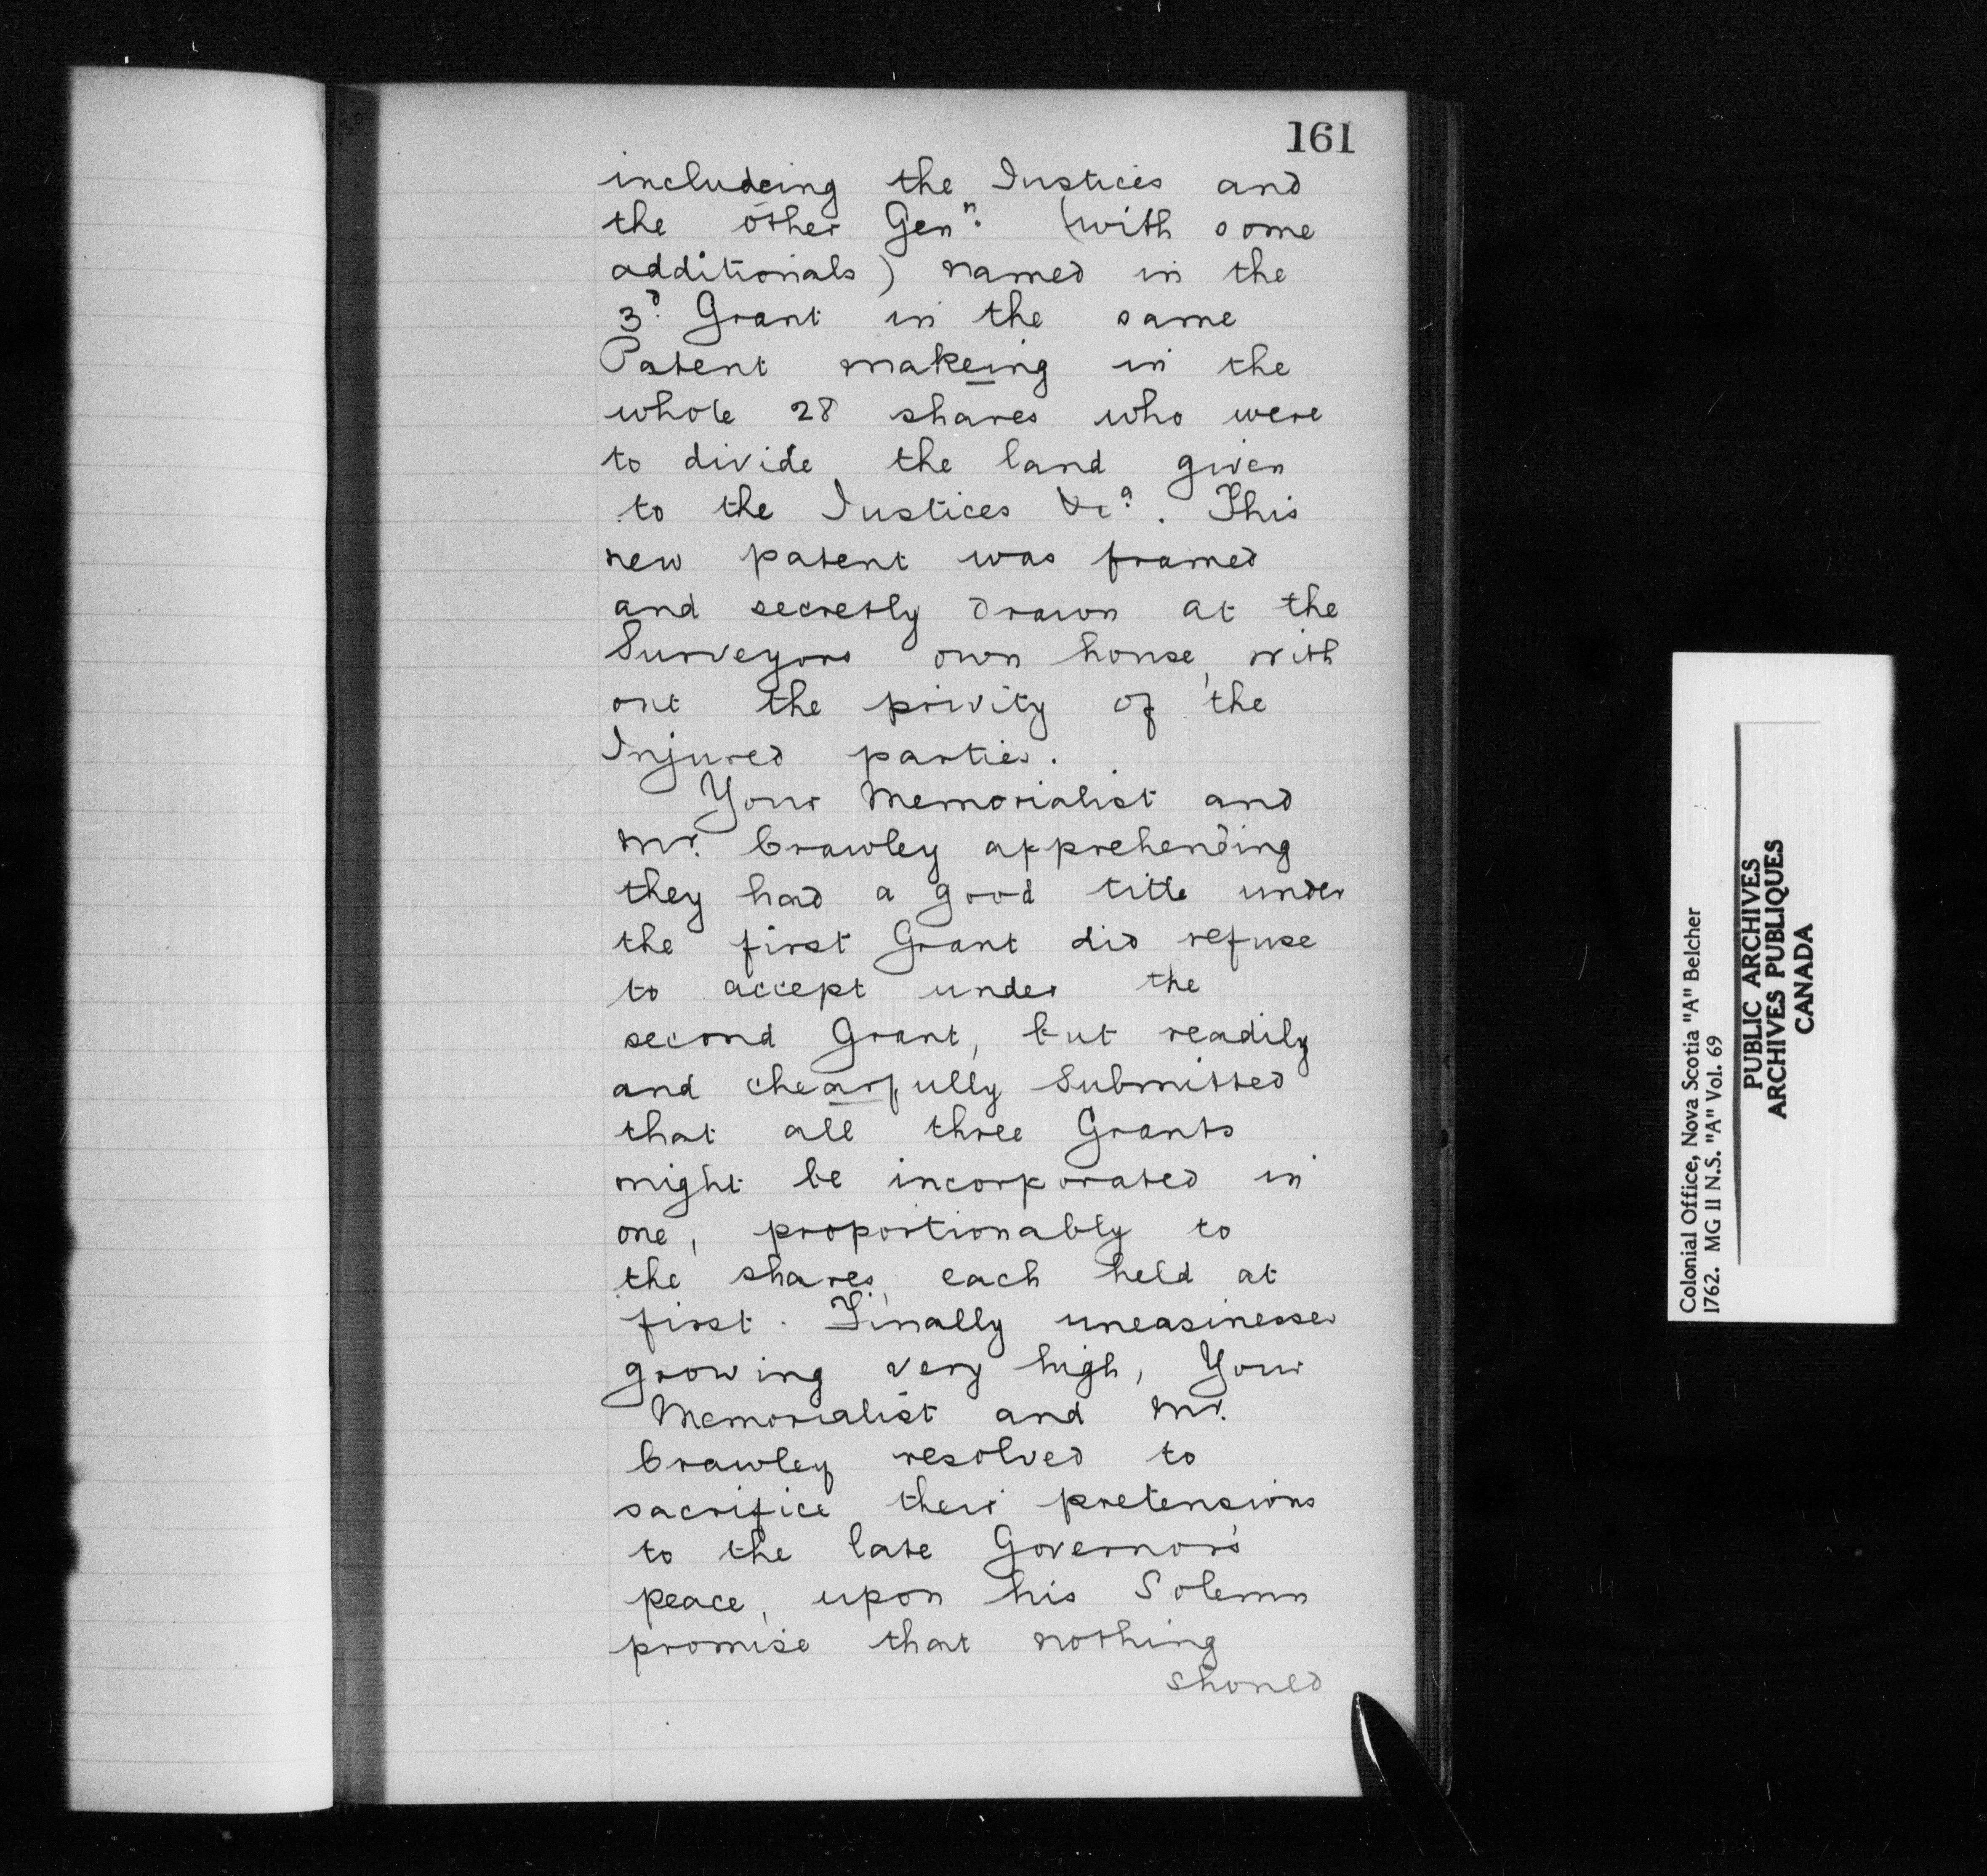 161
includeing the Justices and
the other Genn. (with some
additionals) named in the
3d. Grant in the same
Patent makeing in the
whole 28 shares who were
to divide the land given
to the Justices &ca. This
new patent was framed
and secretly drawn at the
Surveyors own house, with
out the privity of the
Injured parties.
Your Memorialist and
Mr. Crawley apprehending
they had a good title under
the first Grant did refuse
to accept under the
second Grant, but readily
and chearfully Submitted
that all three Grants
might be incorporated in
one, proportionably to
the shares, each held at
first. Finally uneasinesses
growing very high, Your
Memorialist and Mr.
Crawley resolved to
sacrifice their pretensions
to the late Governor's
peace, upon his Solemn
promise that nothing
should
Colonial Office, Nova Scotia "A" Belcher
1762. MG II N.S. "A" Vol. 69
PUBLIC ARCHIVES
ARCHIVES PUBLIQUES
CANADA